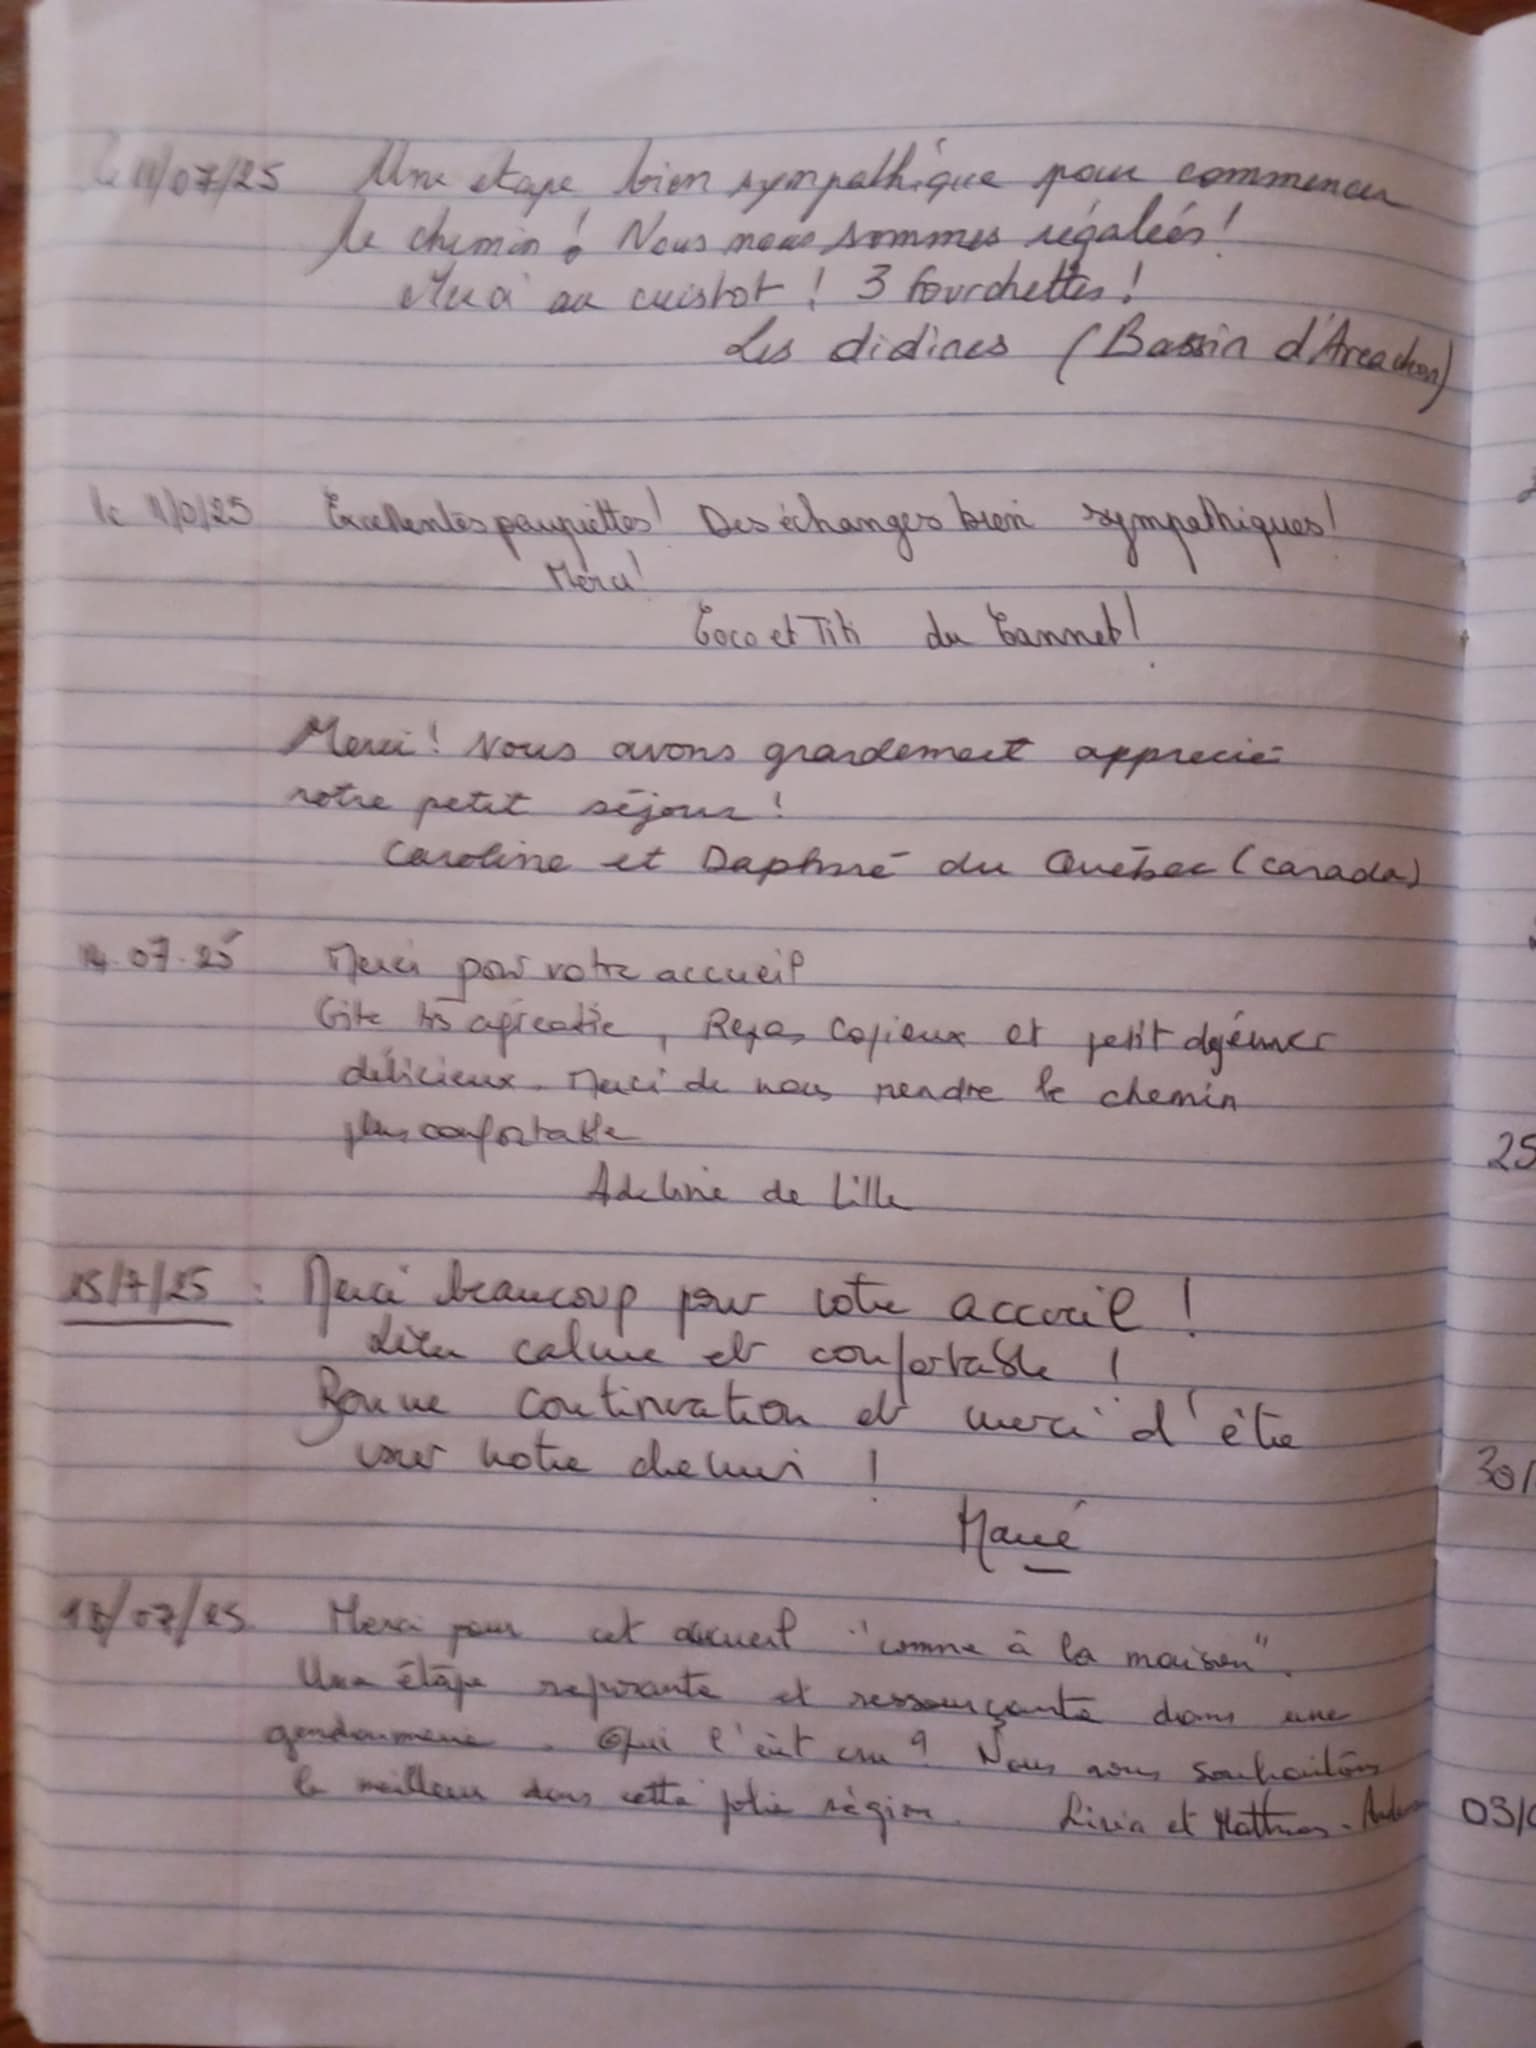 Le 11/07/25 Une etape bien sympathique pour commencer
le chemin ! Nous nous sommes régalées !
Merci au cuistot ! 3 fourchettes !
Les didines (Bassin d'Arcachon)
le 11/0/25 Excellentes paupiettes ! Des échanges bien sympathiques !
Merci !
Coco et Titi du Cannet !
Merci ! Nous avons grandement apprecié
notre petit séjour !
Caroline et Daphné du Québec (Canada)
14.07.25 Merci pour votre accueil
Gite très agréable, Repas copieux et petit déjeuner
délicieux. Merci de nous rendre le chemin
plus confortable
Adeline de Lille
15/7/25 : Merci beaucoup pour votre accueil !
Lieu calme et confortable !
Bonne continuation et merci d'être
sur notre chemin !
/07/25 Merci pour cet accueil "comme à la maison".
Une étape reposante et ressourçante dans une
gendarmerie. Qui l'eût cru ? Nous vous souhaitons
le meilleur dans cette jolie région. Livia et Mathias.
25
30/
03/0